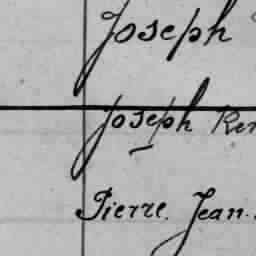 Joseph
Joseph
Pierre. Jean.